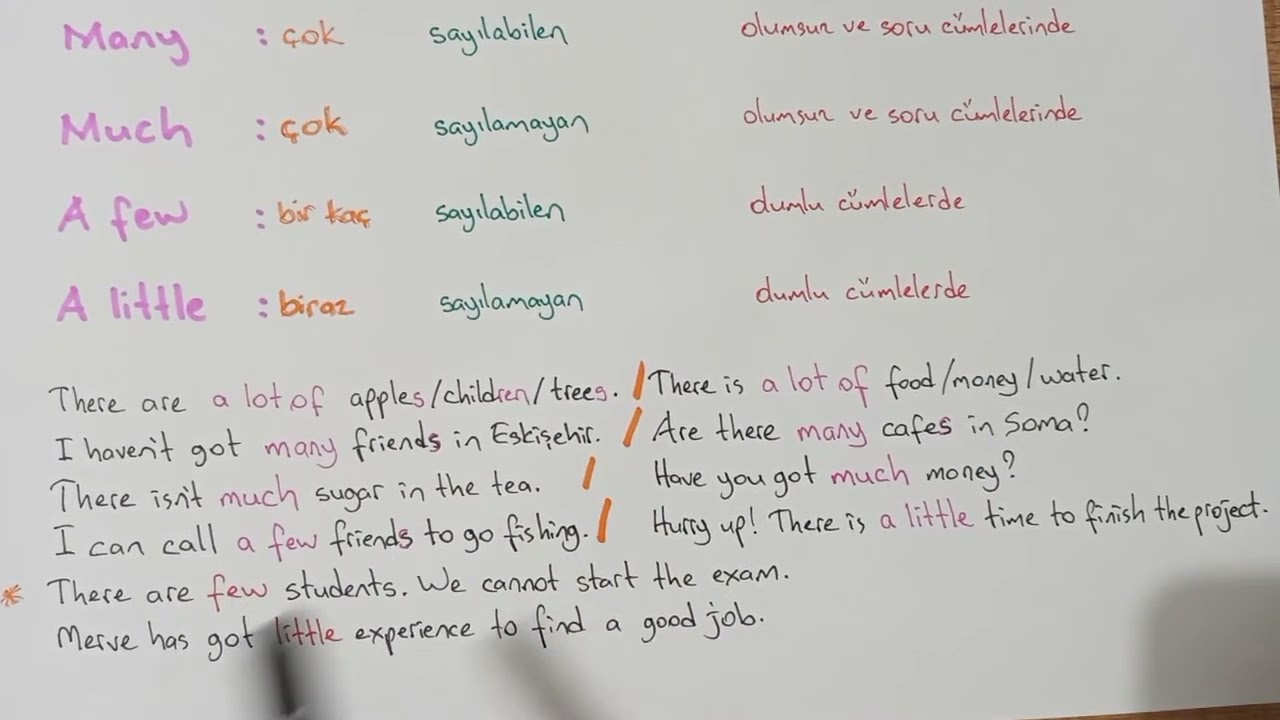 Many : çok sayılabilen olumsuz ve soru cümlelerinde
Much : çok sayılamayan olumsuz ve soru cümlelerinde
A few : bir kaç sayılabilen olumlu cümlelerde
A little : biraz sayılamayan olumlu cümlelerde
There are a lot of apples/children/trees. / There is a lot of food/money/water.
I haven't got many friends in Eskişehir. / Are there many cafes in Soma?
There isn't much sugar in the tea. / Have you got much money?
I can call a few friends to go fishing. / Hurry up! There is a little time to finish the project.
* There are few students. We cannot start the exam.
Merve has got little experience to find a good job.